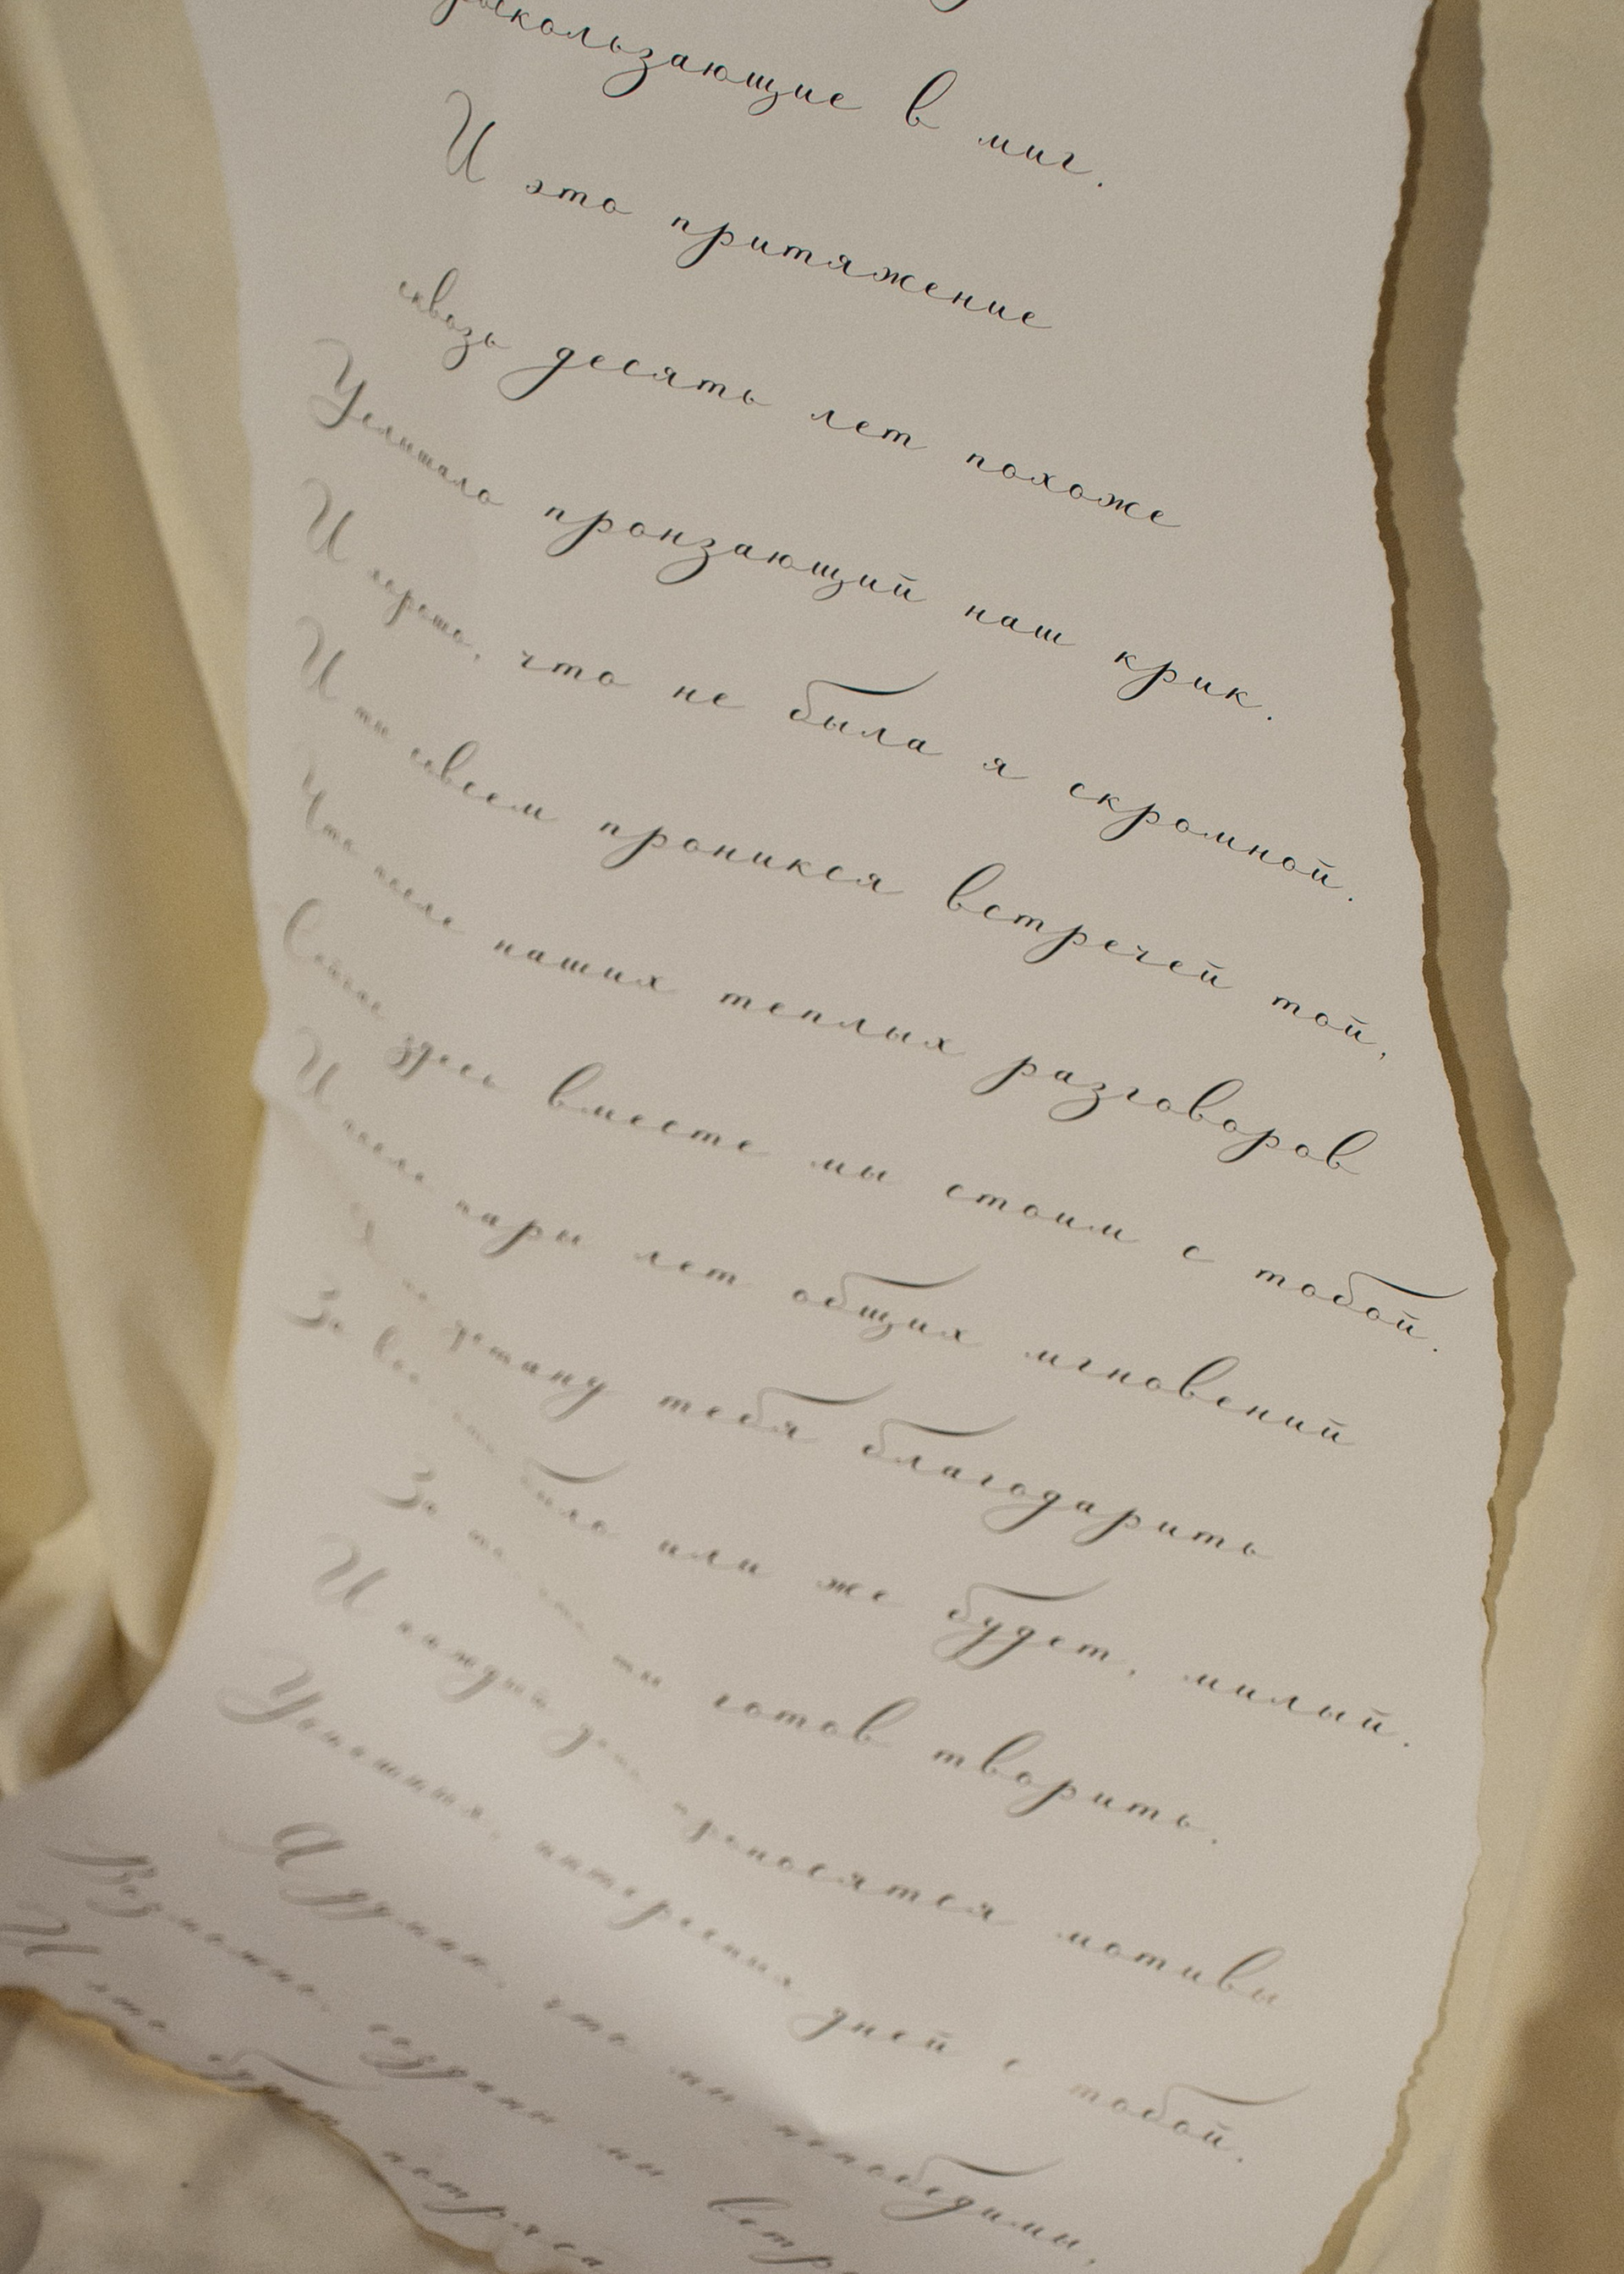 в миг.
И это притяжение
сквозь десять лет похоже
Услышало пронзающий наш крик.
И хорошо, что не была я скромной.
И ты совсем проникся встречей той,
Что после наших теплых разговоров
Сейчас здесь вместе мы стоим с тобой.
И после пары лет общих мгновений
Я не устану тебя благодарить
За все, что было или же будет, милый.
За то, что ты готов творить.
И каждый день проносятся мотивы
дней с тобой.
Я думаю, что мы непобедимы,
Возможно, созданы мы
И это будет